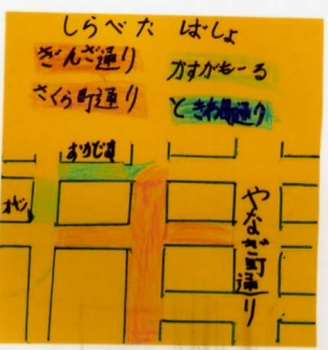 しらべた ばしょ
ぎんざ通り
かすがもーる
さくら町通り
ときわ町通り
やなぎ町通り